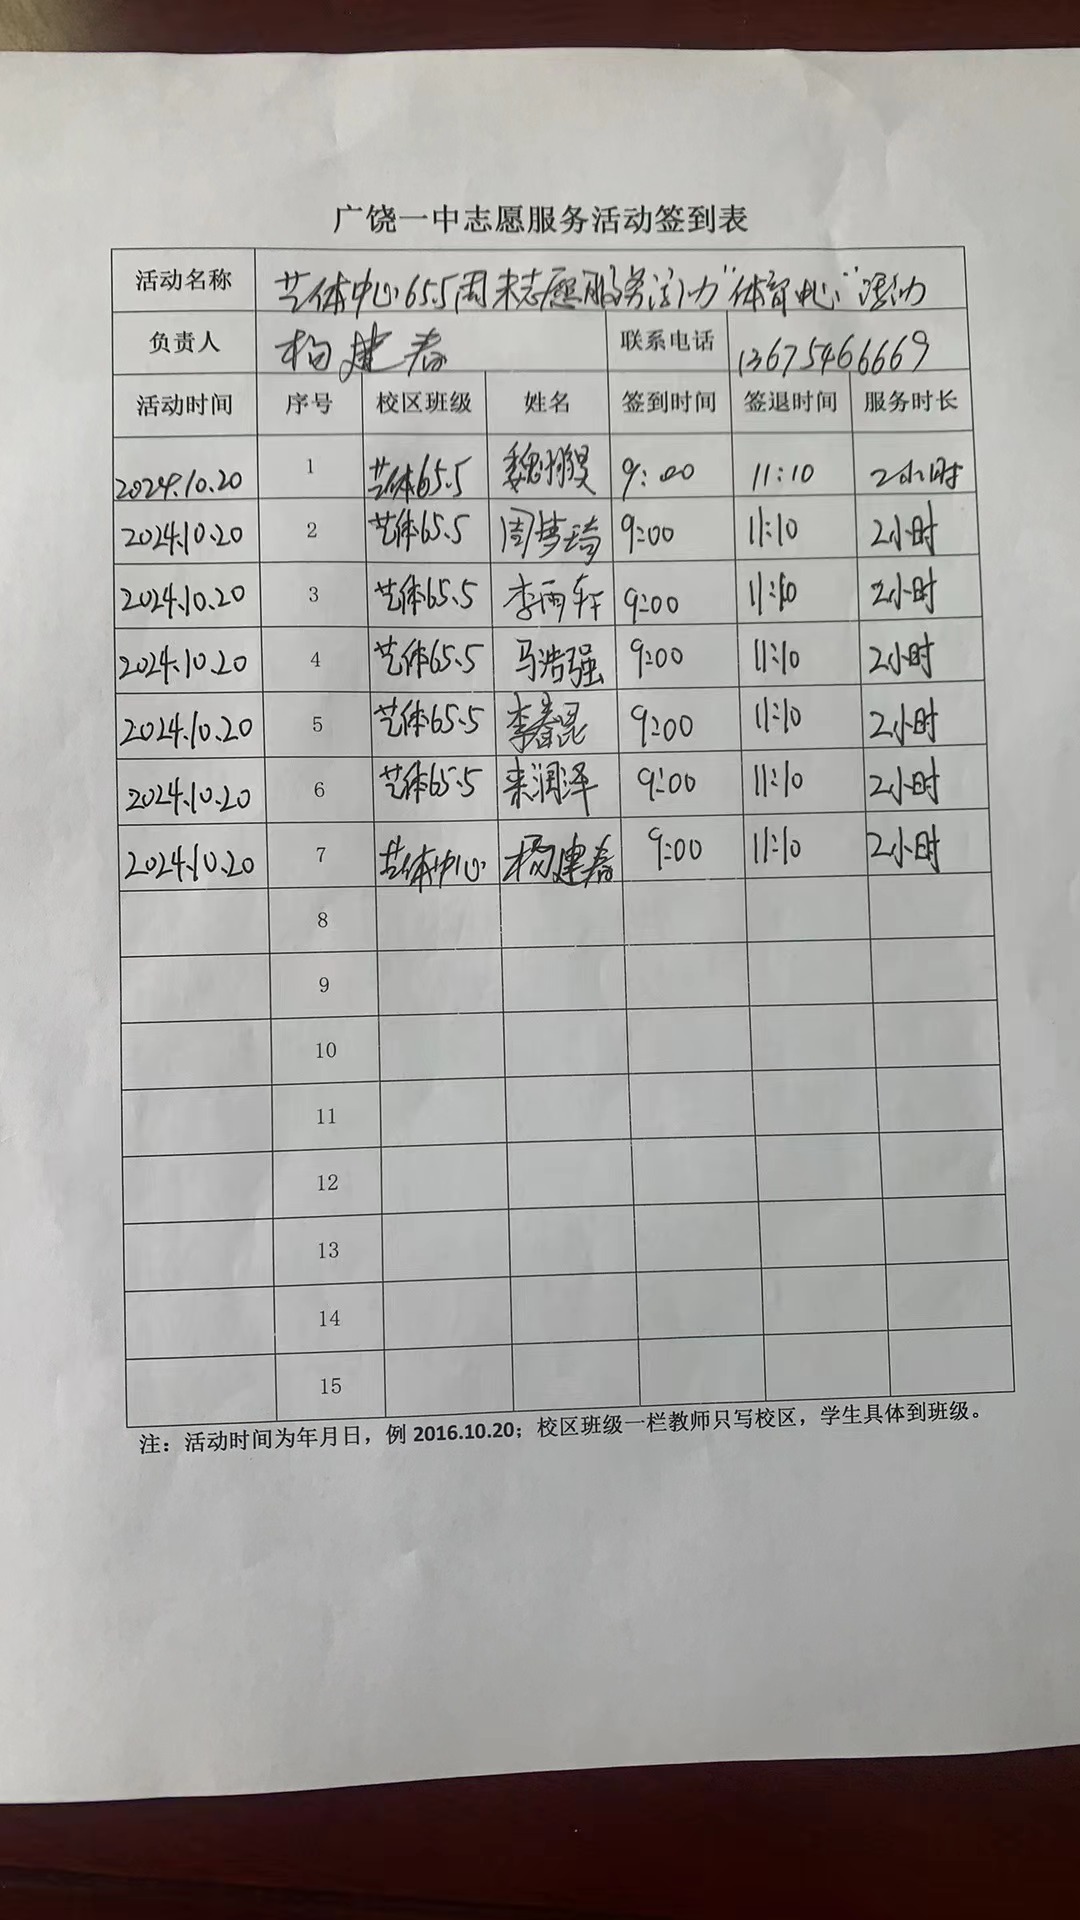 广饶一中志愿服务活动签到表
活动名称 艺体中心65.5周末志愿服务活动"体育中心"活动
负责人 杨建春 联系电话 13675466669
活动时间 序号 校区班级 姓名 签到时间 签退时间 服务时长
2024.10.20 1 艺体65.5 魏翔昊 9:00 11:10 2小时
2024.10.20 2 艺体65.5 周梦琦 9:00 11:10 2小时
2024.10.20 3 艺体65.5 李雨轩 9:00 11:10 2小时
2024.10.20 4 艺体65.5 马浩强 9:00 11:10 2小时
2024.10.20 5 艺体65.5 李春昆 9:00 11:10 2小时
2024.10.20 6 艺体65.5 来润泽 9:00 11:10 2小时
2024.10.20 7 艺体中心 杨建春 9:00 11:10 2小时
8
9
10
11
12
13
14
15
注：活动时间为年月日，例 2016.10.20；校区班级一栏教师只写校区，学生具体到班级。